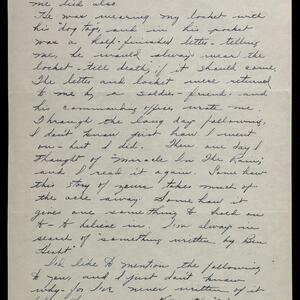 me died also
He was wearing my locket with
his "dog tags, and in his pocket
was a half-finished letter- telling
me, he would always wear the
locket - till death, if it should come.
The letter and locket were returned
to me by a soldier-friend, and
his commanding officer wrote me.
Through the long day following,
I don't know just how I went
on - but I did. Then one day I
thought of "Miracle In The Rain,"
and I read it again. Somehow
this story of yours takes much of
the ache away. Somehow it
gives one something to hack on
to - to believe in. I'm always in
search of "something written by Ben
Hecht"
I'd like to mention the following
to you, and I just don't know
why - for I've never written of it